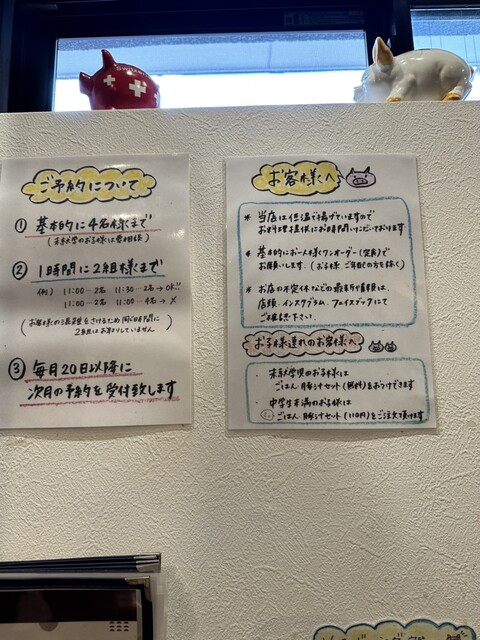 ご予約について
① 基本的に4名様まで
(未就学のお子様は要相談)
② 1時間に2組様まで
(例) 11:00…2名 11:30…2名→OK!!
11:00…2名 11:00…4名→×
(お客様の混雑をさけるため同時時間に
2組様はお取りしていません)
③ 毎月20日以降に
次月の予約を受付致します
お客様へ
* 当店は低温で揚げていますので
お料理提供にお時間いただいております
* 基本的にお一人様ワンオーダー(定食)で
お願いします。(お子様、ご年配の方を除く)
* お店の不定休などの最新情報は、
店頭、インスタグラム、フェイスブックにて
ご確認下さい。
お子様連れのお客様へ
・未就学児のお子様には
ごはん 豚汁セット(無料)をおつけできます
・中学生未満のお子様は
ごはん 豚汁セット(110円)をご注文頂けます